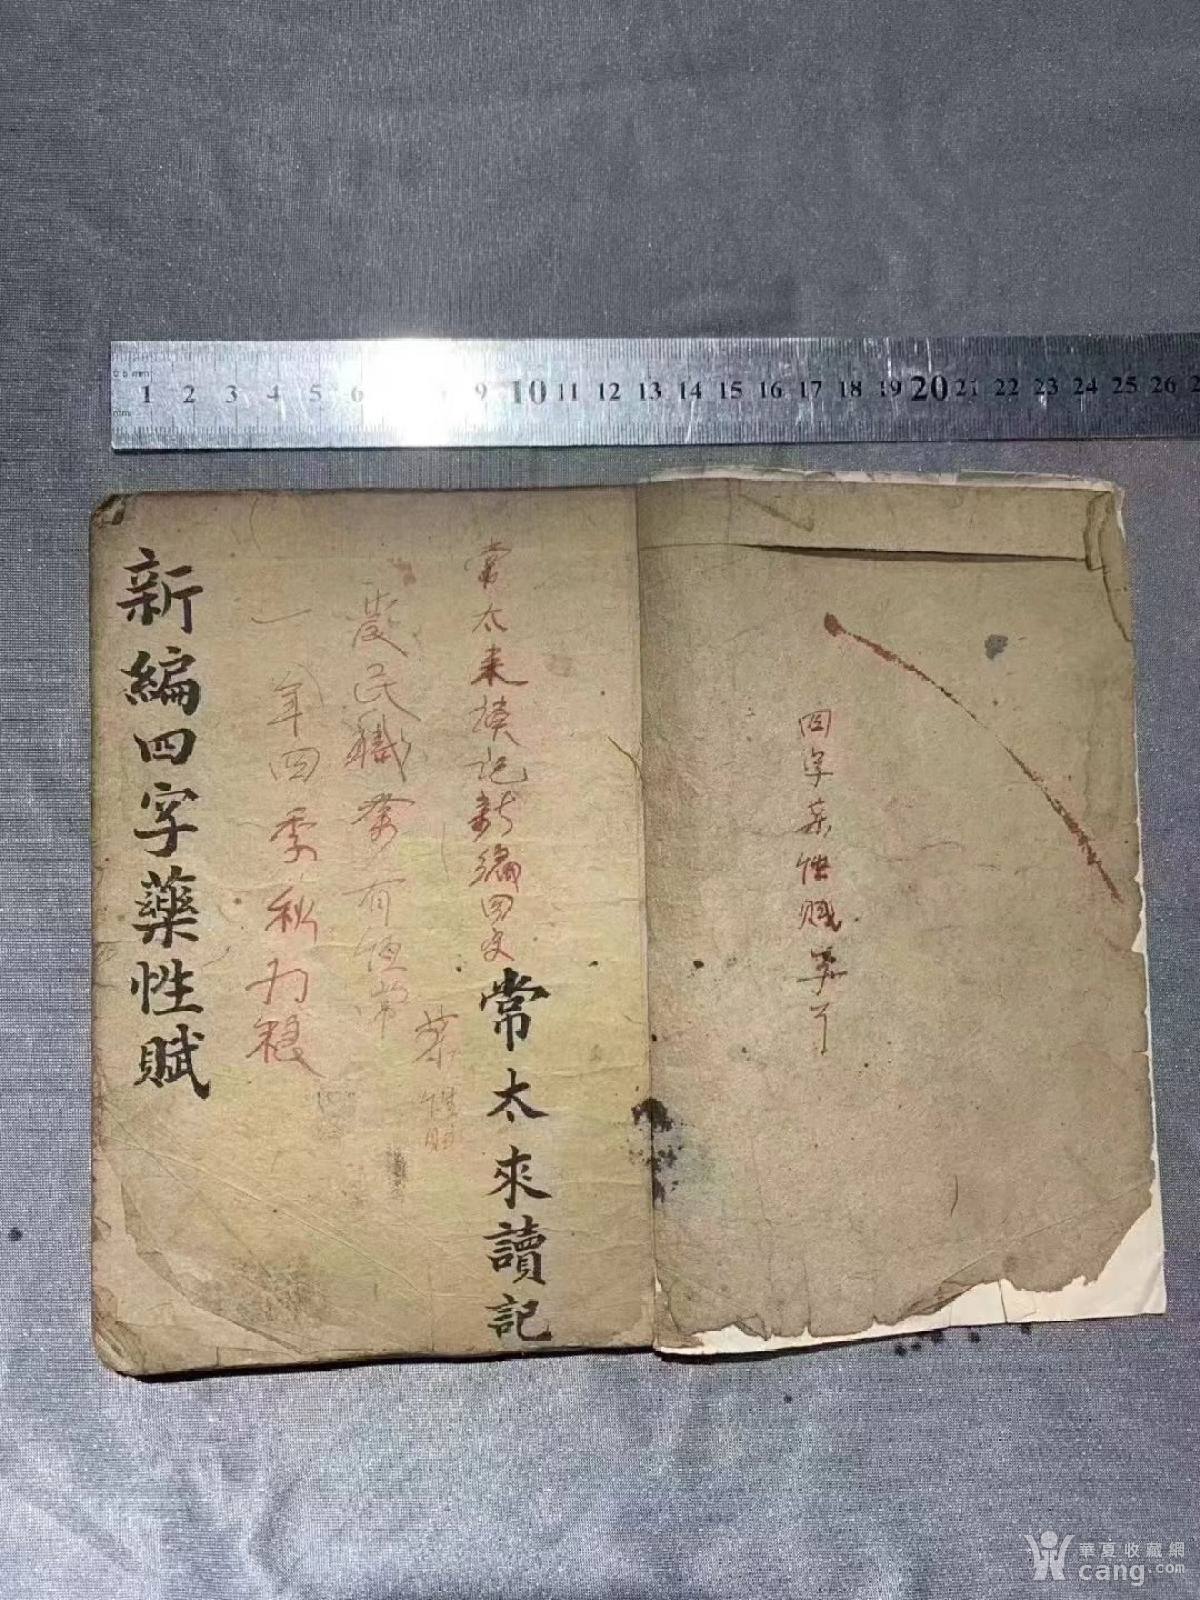 0.5mm
mm
1 2 3 4 5 6 9 10 11 12 13 14 15 16 17 18 19 20 21 22 23 24 25 26
四字药性赋
常太来读记新编四
常太來讀記
药性
農民職务有恒常
一年四季秋为稳
新編四字藥性賦
華夏收藏網
cang.com